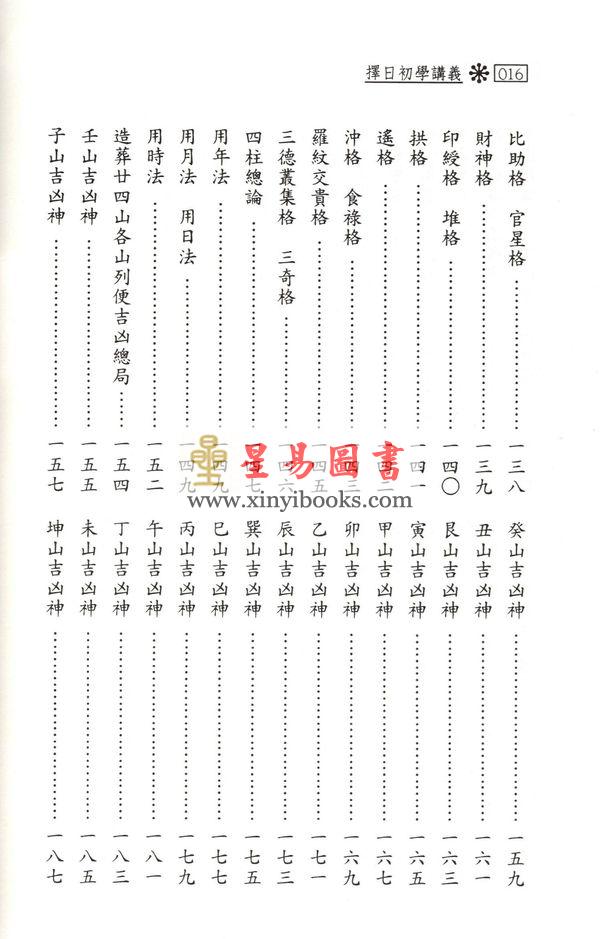 擇日初學講義 016
比助格　官星格……一三八
財神格……一三九
印綬格　堆格……一四〇
拱格……一四一
遙格……一四二
沖格　食祿格……一四三
羅紋交貴格……一四五
三德叢集格　三奇格……一四六
四柱總論……一四七
用年法……一四九
用月法　用日法……一四九
用時法……一五二
造葬廿四山各山列便吉凶總局……一五四
壬山吉凶神……一五五
子山吉凶神……一五七
癸山吉凶神……一五九
丑山吉凶神……一六一
艮山吉凶神……一六三
寅山吉凶神……一六五
甲山吉凶神……一六七
卯山吉凶神……一六九
乙山吉凶神……一七一
辰山吉凶神……一七三
巽山吉凶神……一七五
巳山吉凶神……一七七
丙山吉凶神……一七九
午山吉凶神……一八一
丁山吉凶神……一八三
未山吉凶神……一八五
坤山吉凶神……一八七
星易圖書
www.xinyibooks.com